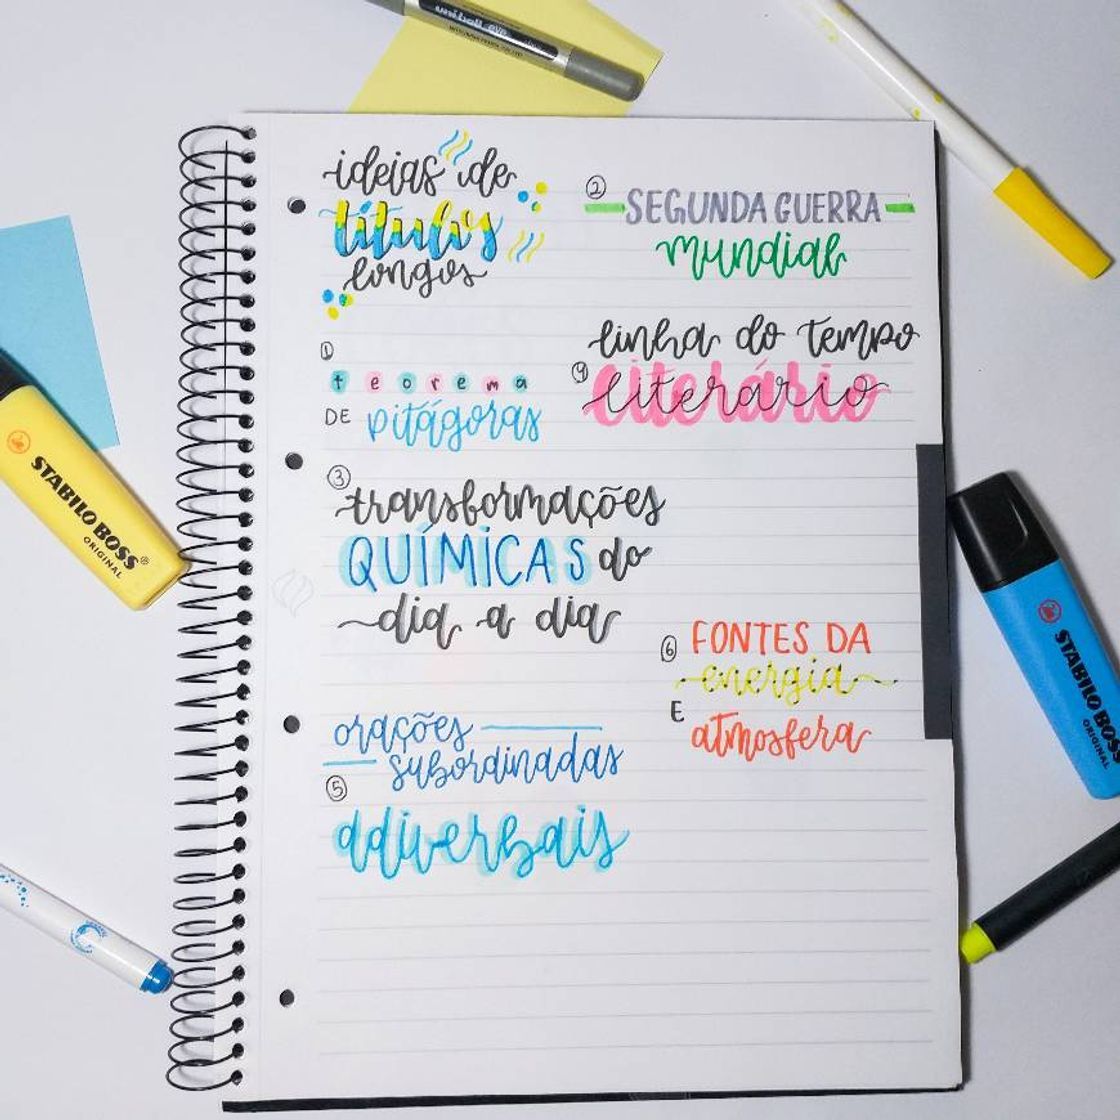 ideias de
títulos
longos
①
teorema
DE pitágoras
②
SEGUNDA GUERRA
mundial
③
transformações
QUÍMICAS do
dia a dia
④
linha do tempo
literário
⑤
orações
subordinadas
adiverbais
⑥
FONTES DA
energia
E
atmosfera
uniball eye
STABILO BOSS
ORIGINAL
STABILO BOSS
ORIGINAL